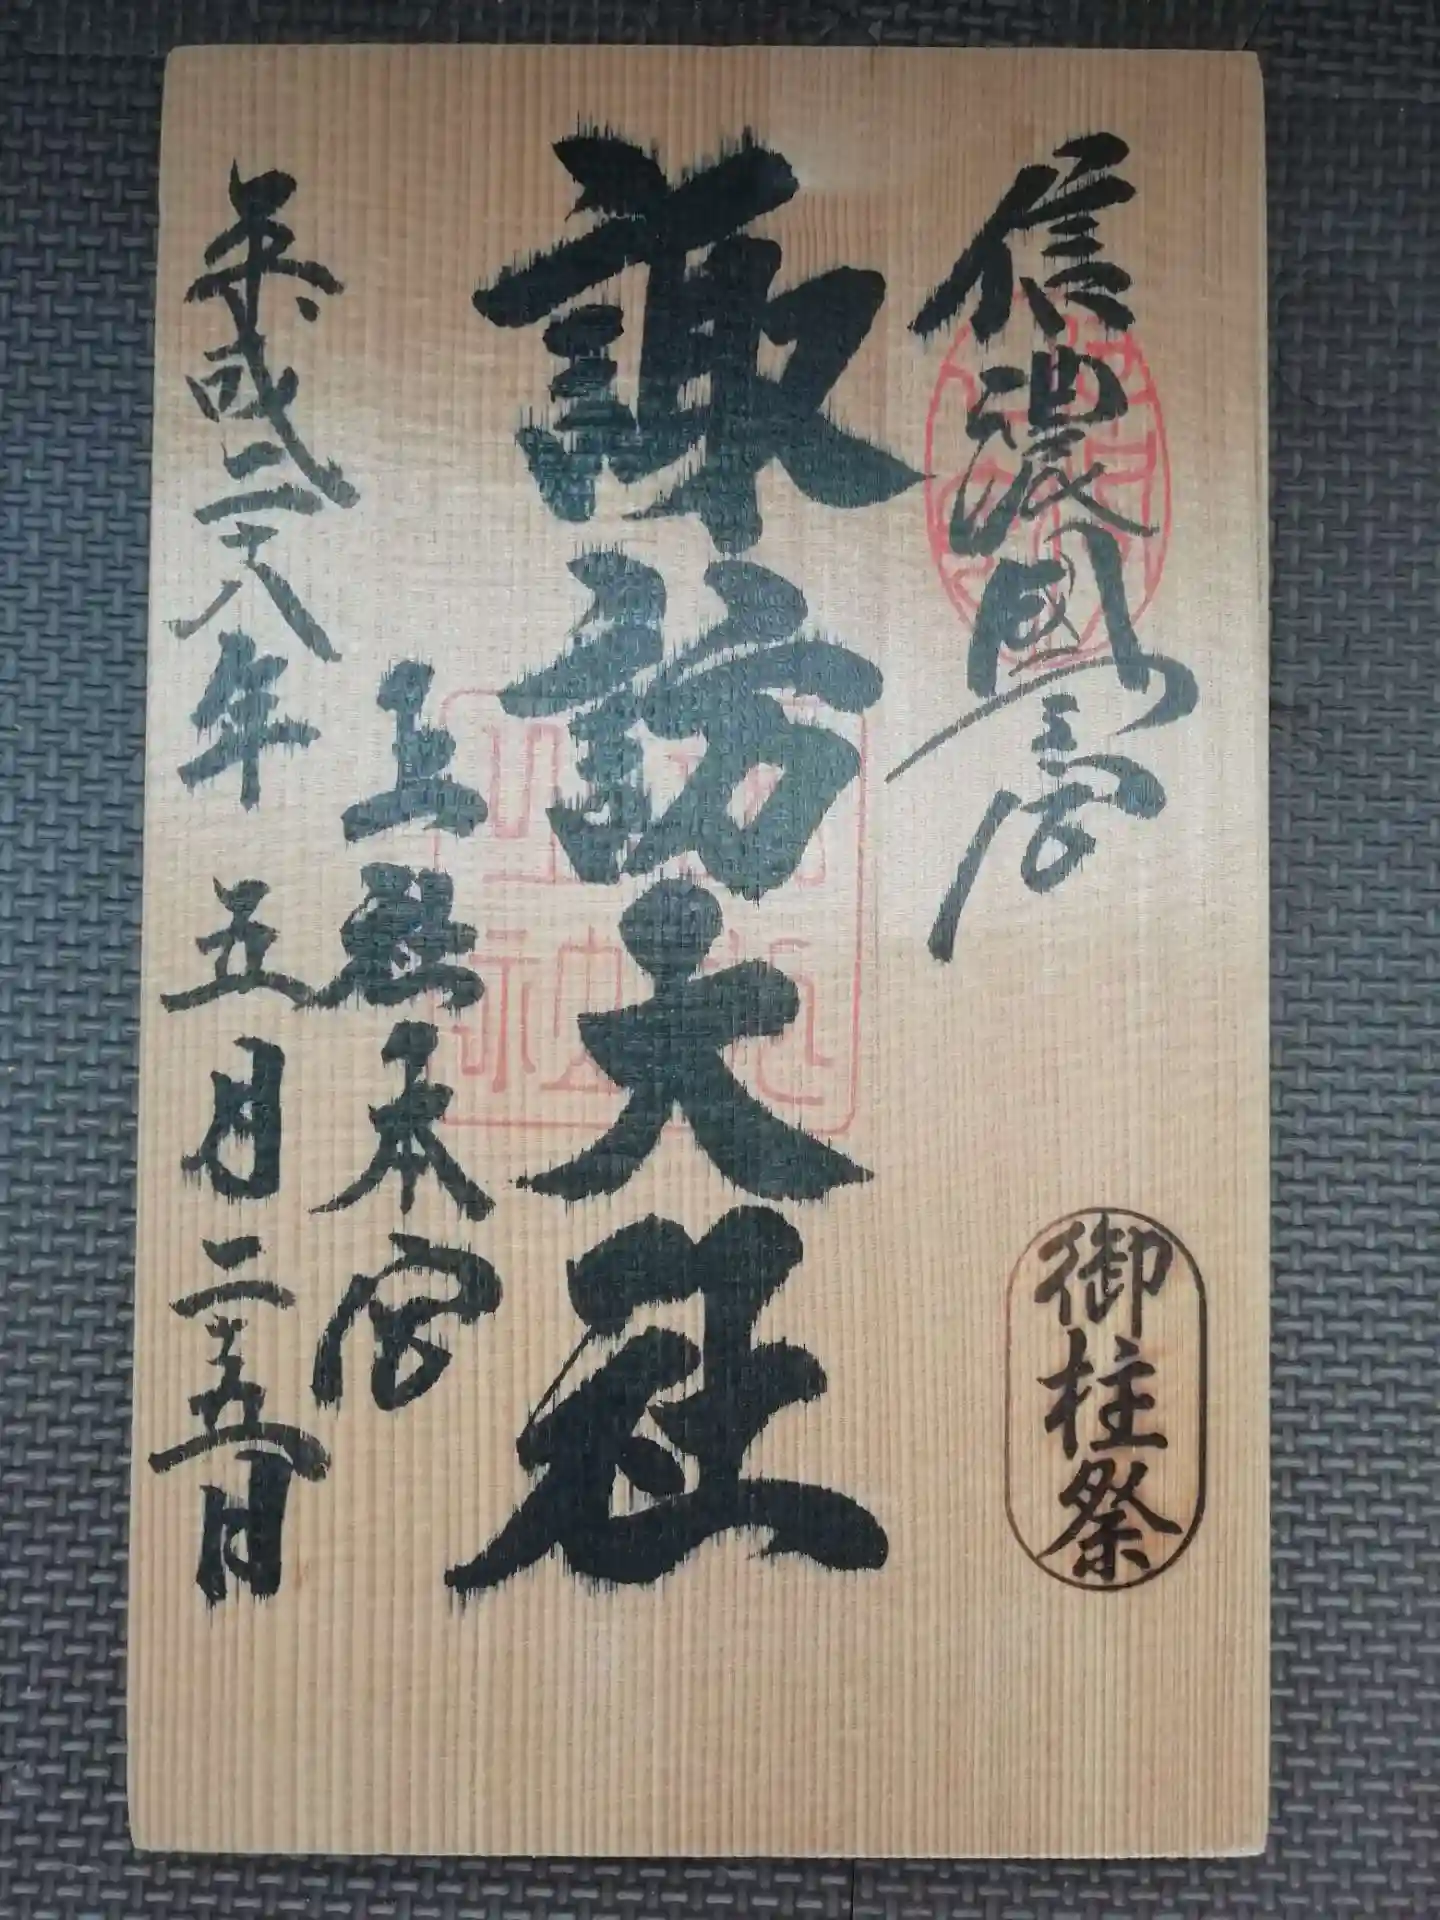 信濃國一宮
御柱祭
諏訪大社
上社本宮
平成二十八年 五月二十五日